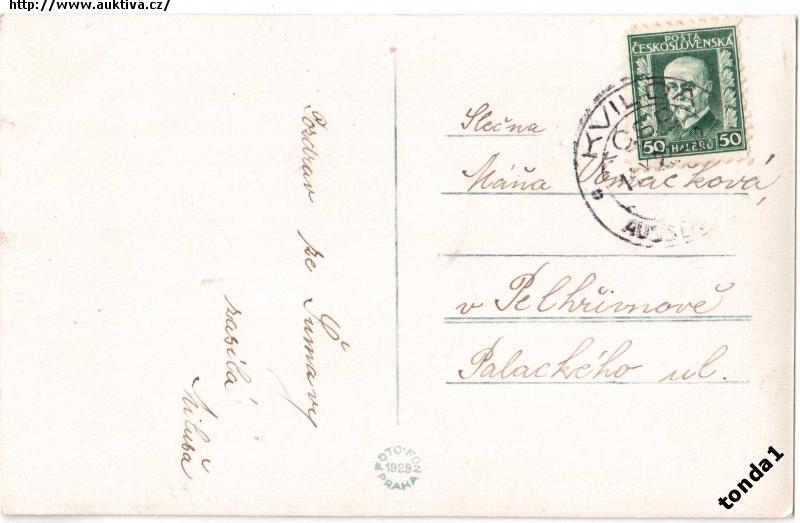 http://www.auktiva.cz/
Pozdrav ze Šumavy
zasílá
Miluša
POŠTA
ČESKOSLOVENSKÁ
50 HALÉŘŮ 50
KVILDA
ČSR
Slečna
Máňa Tomačková,
v Pelhřimově
Palackého ul.
FOTO-FON
1928
PRAHA
tonda1